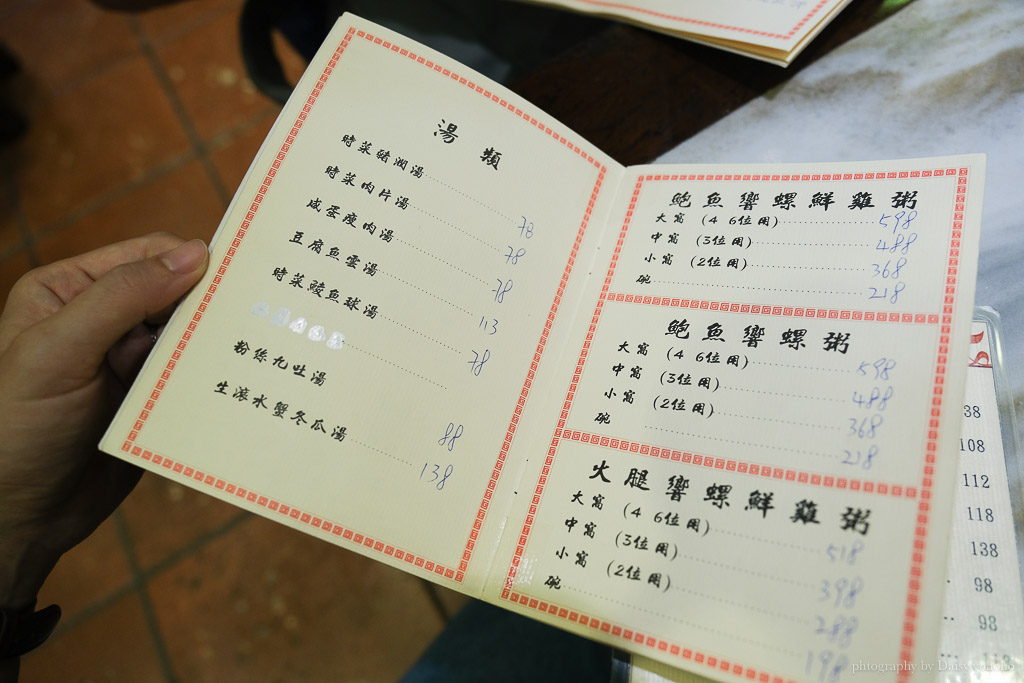 湯類
時菜豬潤湯 78
時菜肉片湯 78
咸蛋瘦肉湯 78
豆腐魚雲湯 113
時菜鯪魚球湯 78
粉絲九吐湯 88
生滾水蟹冬瓜湯 138
鮑魚響螺鮮雞粥
大窩 (4 6位用) 598
中窩 (3位用) 488
小窩 (2位用) 368
碗 218
鮑魚響螺粥
大窩 (4 6位用) 598
中窩 (3位用) 488
小窩 (2位用) 368
碗 218
火腿響螺鮮雞粥
大窩 (4 6位用) 518
中窩 (3位用) 398
小窩 (2位用) 288
碗 198
38
108
112
118
138
98
98
photography by Daisy